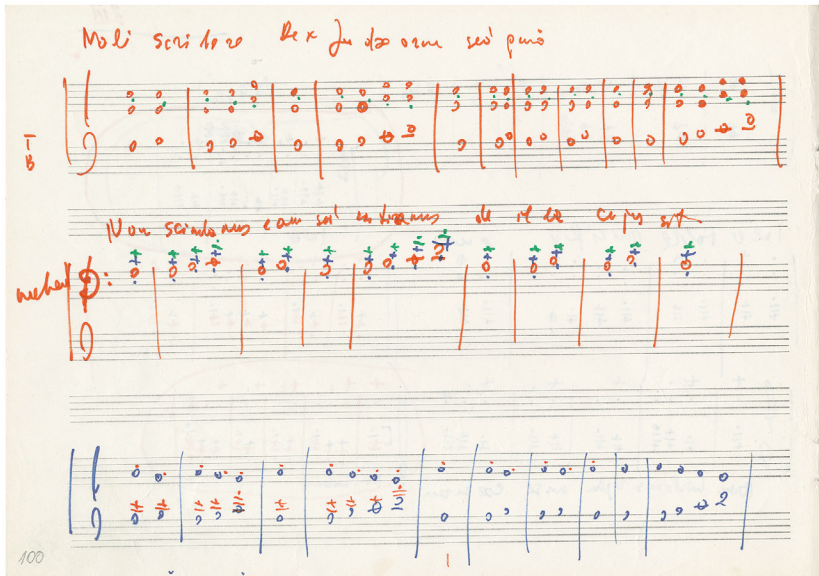 Noli scribere Rex Judaeorum sed quia
T
B
Non scindamus eam sed sortiamur de illa cujus sit
100